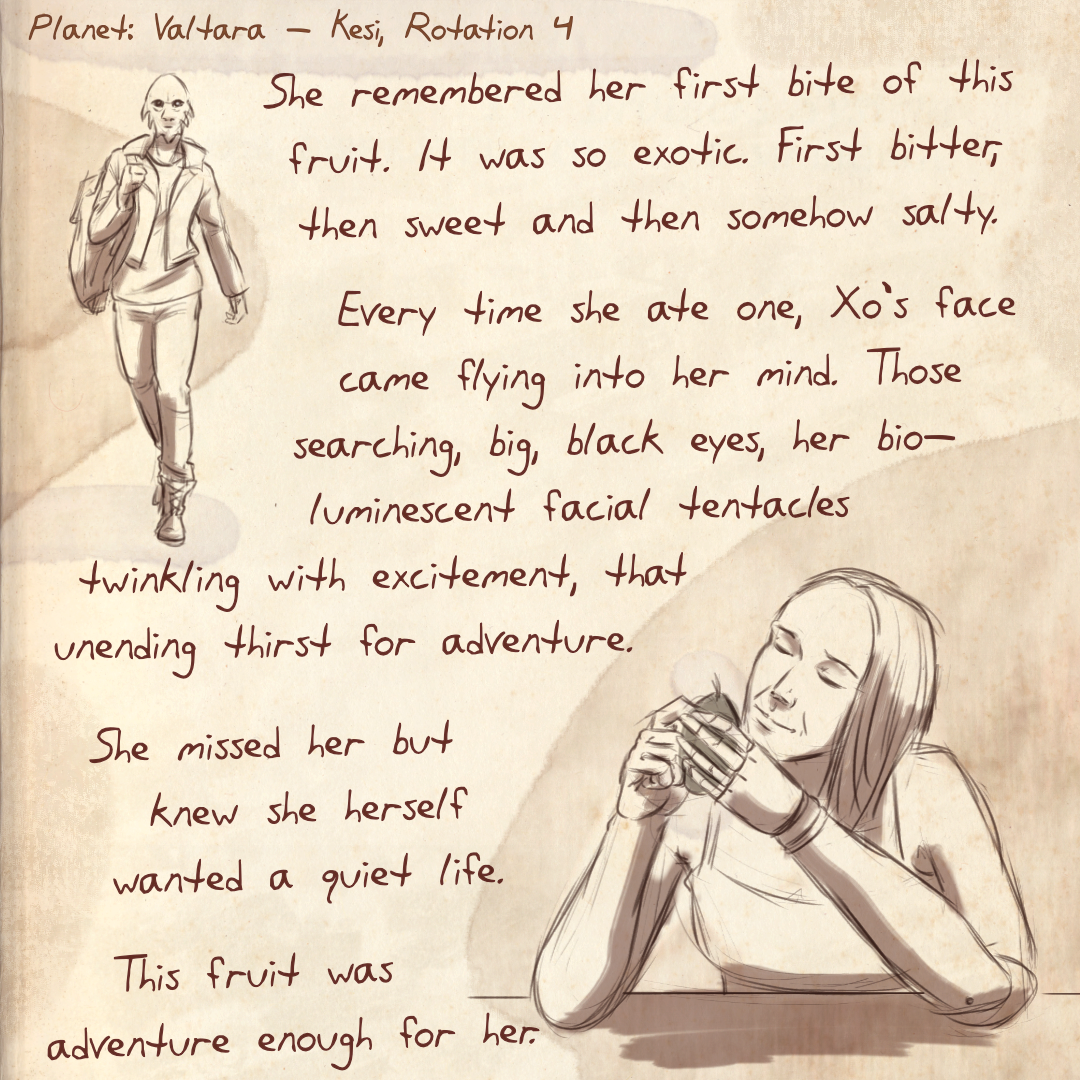 Planet: Valtara — Kesi, Rotation 4
She remembered her first bite of this
fruit. It was so exotic. First bitter,
then sweet and then somehow salty.
Every time she ate one, Xo's face
came flying into her mind. Those
searching, big, black eyes, her bio—
luminescent facial tentacles
twinkling with excitement, that
unending thirst for adventure.
She missed her but
knew she herself
wanted a quiet life.
This fruit was
adventure enough for her.